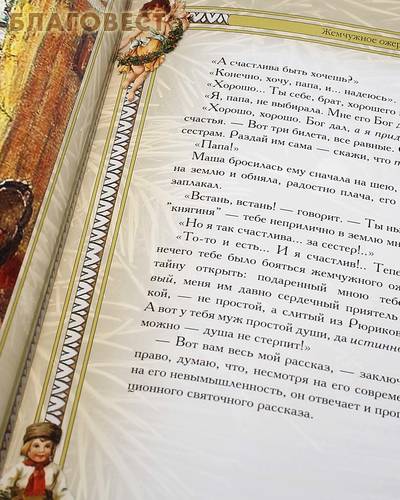 БЛАГОВЕСТ
Жемчужное ожер
"А счастлива быть хочешь?"
"Конечно, хочу, папа, и... надеюсь".
"Хорошо... Ты себе, брат, хорошего
"Я, папа, не выбирала. Мне его Бог
"Хорошо, хорошо. Бог дал, а я прид
счастья. — Вот три билета, все равные.
сестрам. Раздай им сама — скажи, что
"Папа!"
Маша бросилась ему сначала на шею,
на землю и обняла, радостно плача, его
заплакал.
"Встань, встань! — говорит. — Ты
"княгиня" — тебе неприлично в землю мн
"Но я так счастлива... за сестер!.."
"То-то и есть... И я счастлив!.. Тепе
нечего тебе было бояться жемчужного ож
тайну открыть: подаренный мною тебе
вый, меня им давно сердечный приятель
кой, — не простой, а слитый из Рюриков
А вот у тебя муж простой души, да истинн
можно — душа не стерпит!"
— Вот вам весь мой рассказ, — заключ
право, думаю, что, несмотря на его совреме
на его невымышленность, он отвечает и прог
ционного святочного рассказа.